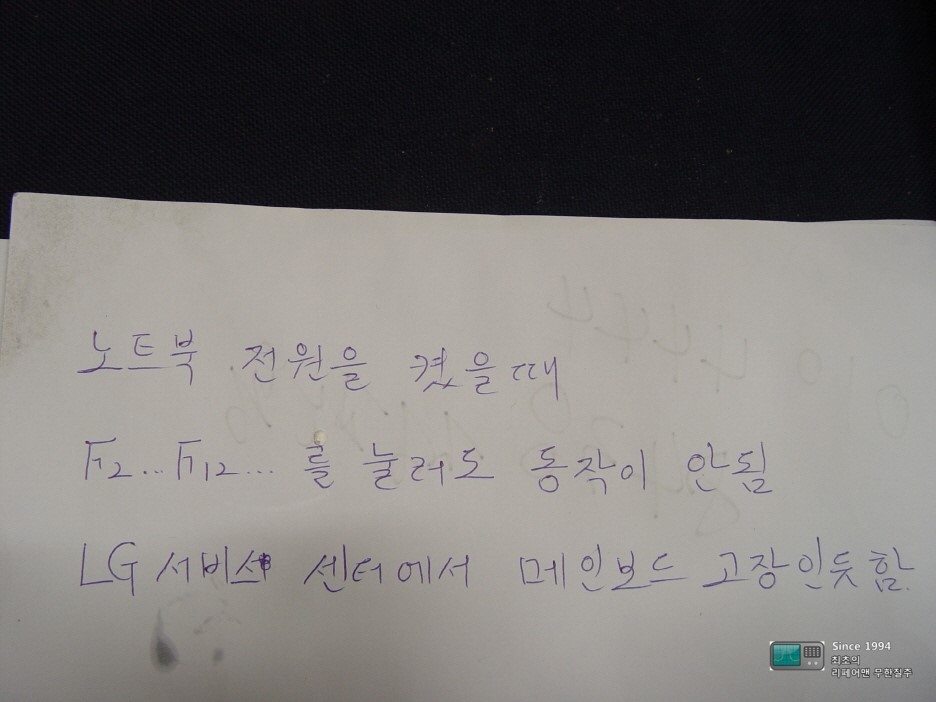 노트북 전원을 켰을때
F2... F12... 를 눌러도 동작이 안됨
LG 서비스 센터에서 메인보드 고장인듯함.
Since 1994
최초의
리페어맨 무한질주